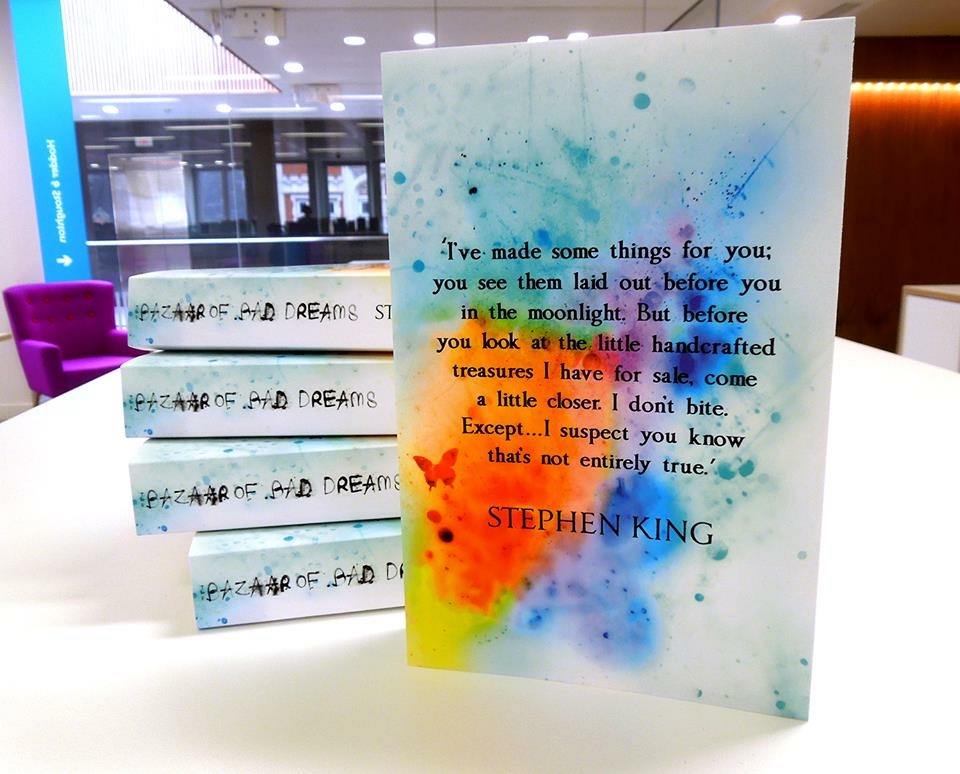 Hodder & Stoughton
BAZAAR OF BAD DREAMS ST
BAZAAR OF BAD DREAMS
BAZAAR OF BAD DREAMS
BAZAAR OF BAD DR
'I've made some things for you;
you see them laid out before you
in the moonlight. But before
you look at the little handcrafted
treasures I have for sale, come
a little closer. I don't bite.
Except...I suspect you know
that's not entirely true.'
STEPHEN KING